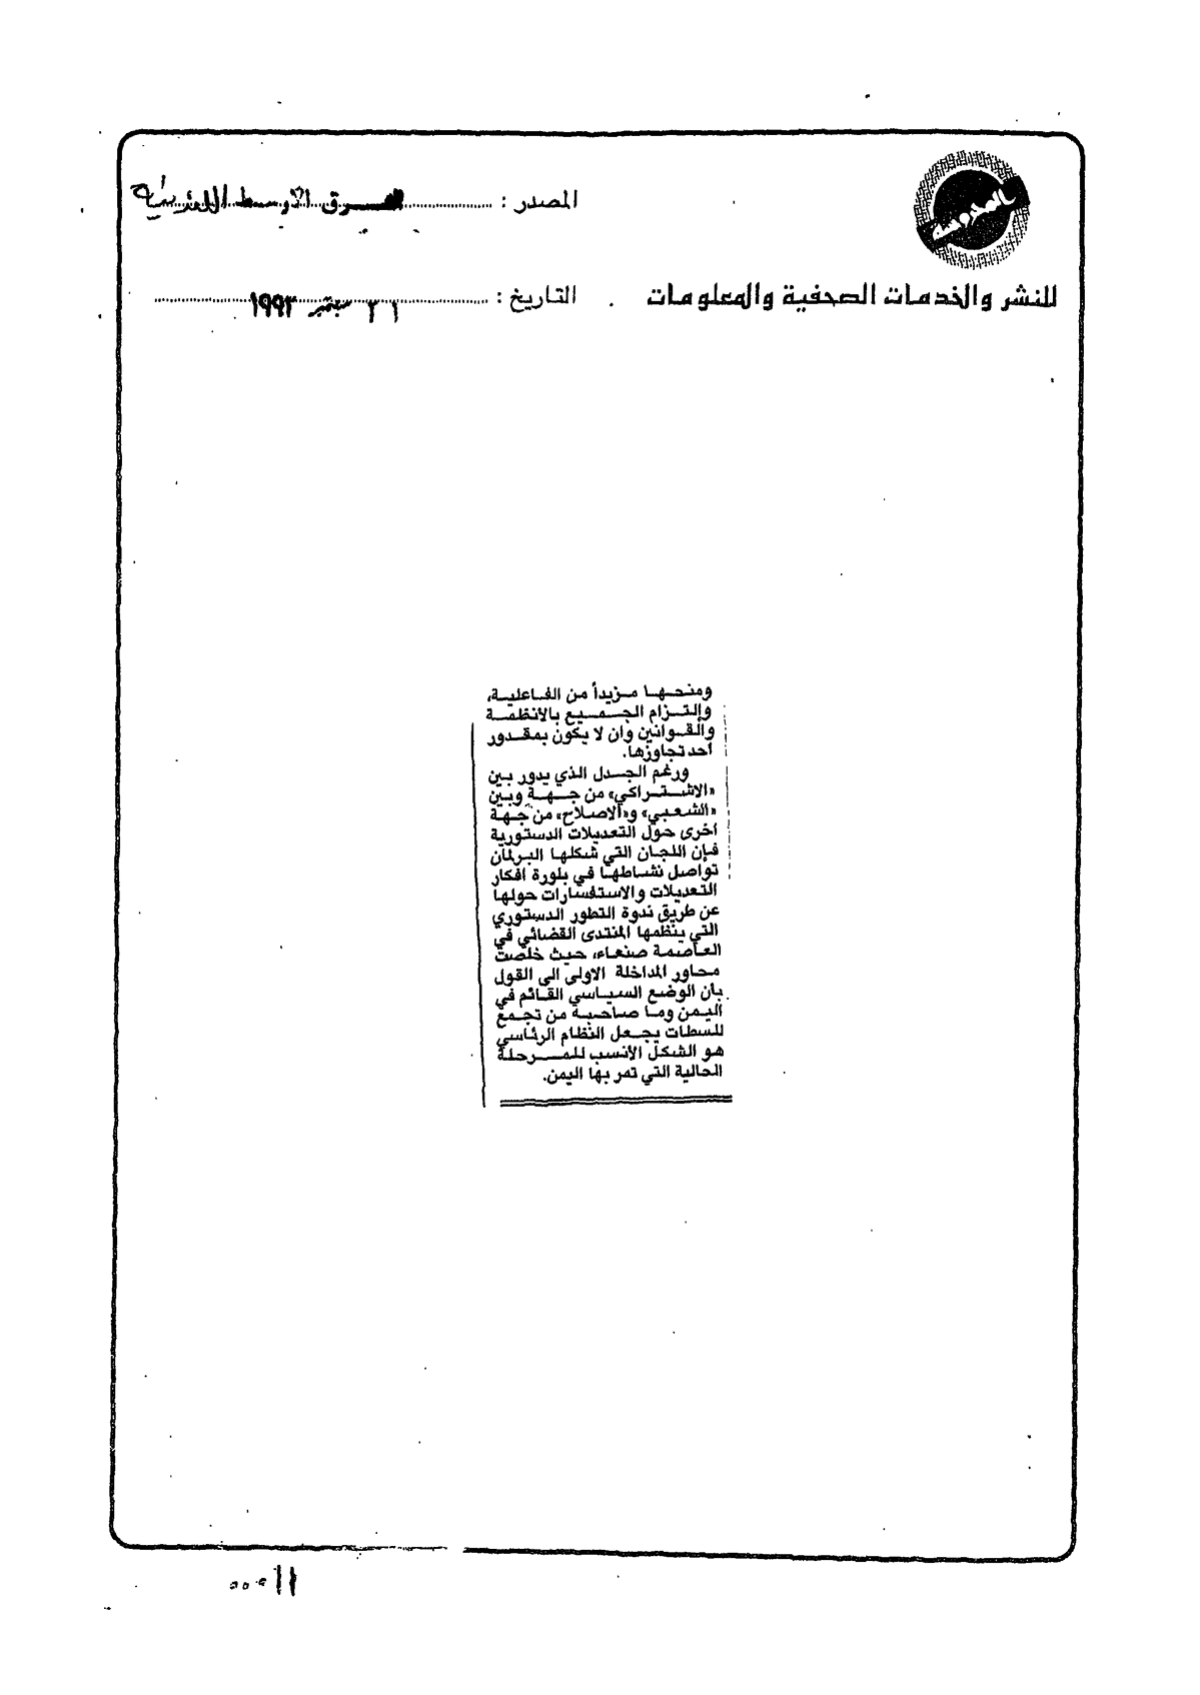 المحروسة
المصدر : الشرق الاوسط اللندنية
للنشر والخدمات الصحفية والمعلومات
التاريخ : سبتمبر ١٩٩٣
ومنحها مزيداً من الفاعلية،
والتزام الجميع بالانظمة
والقوانين وان لا يكون بمقدور
احد تجاوزها.
ورغم الجدل الذي يدور بين
«الاشتراكي» من جهة وبين
«الشعبي» و«الاصلاح» من جهة
اخرى حول التعديلات الدستورية
فإن اللجان التي شكلها البرلمان
تواصل نشاطها في بلورة افكار
التعديلات والاستفسارات حولها
عن طريق ندوة التطور الدستوري
التي ينظمها المنتدى القضائي في
العاصمة صنعاء، حيث خلصت
محاور المداخلة الاولى الى القول
بأن الوضع السياسي القائم في
اليمن وما صاحبه من تجمع
للسطات يجعل النظام الرئاسي
هو الشكل الأنسب للمرحلة
الحالية التي تمر بها اليمن.